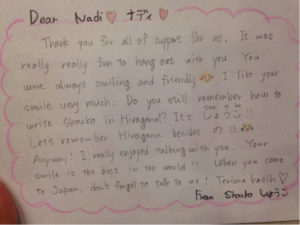 Dear Nadi♡ ナディ♡
Thank you for all of support for us. It was
really really fun to hang out with you. You
were always smiling and friendly I like your
smile very much. Do you still remember how to
write Shouko in Hiragana!? It's しょうこ!!
Let's remember Hiragana besides の!!
Anyway! I really enjoyed talking with you. Your
smile is the best in the world!! When you come
to Japan, don't forget to talk to us! Terima kasih♡
From Shouko しょうこ